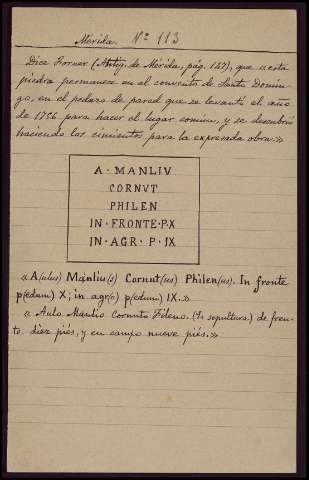 Mérida. Nº 113
Dice Forner (Antig. de Mérida, pág. 147), que «esta
piedra permanece en el convento de Santo Domin-
go, en el pedazo de pared que se levantó el año
de 1756 para hacer el lugar común, y se descubrió
haciendo los cimientos para la expresada obra.»
A · MANLIV
CORNVT
PHILEN
IN · FRONTE · P · X
IN · AGR · P · IX
«A(ulus) Manliu(s) Cornut(us) Philen(us). In fronte
p(edum) X; in agr(o) p(edum) IX.»
«Aulo Manlio Cornuto Fileno. (Su sepultura) de fren-
te diez piés, y en campo nueve piés.»